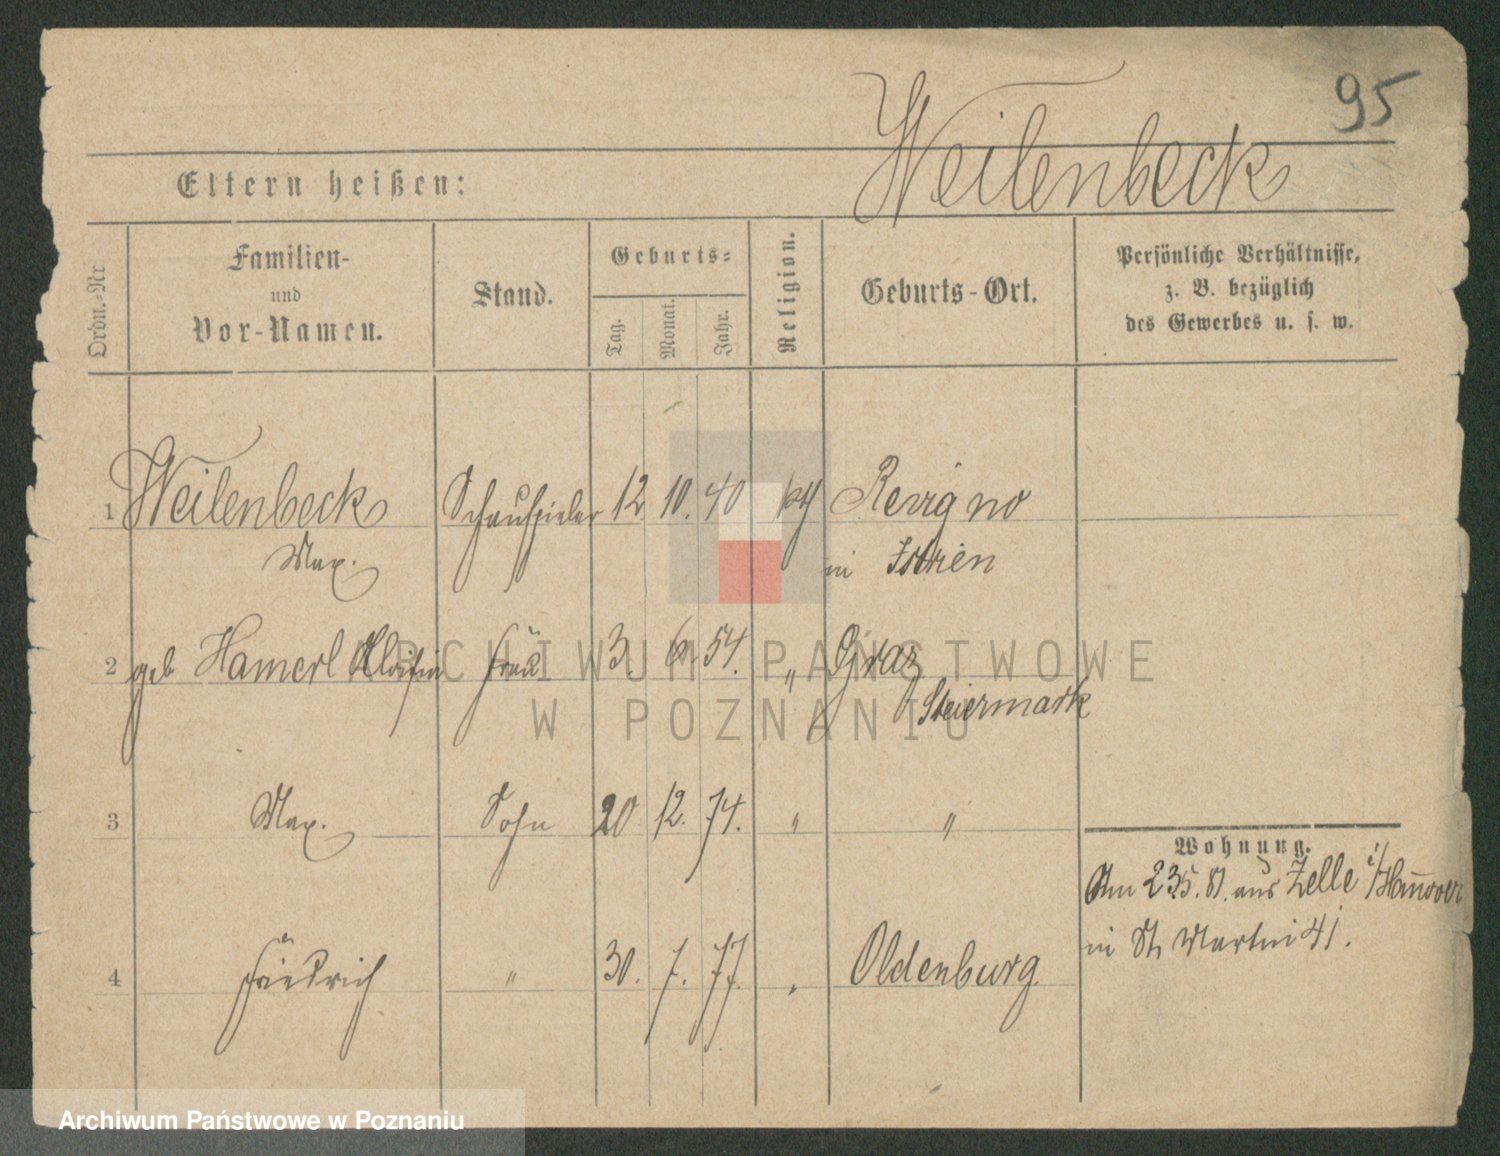 95
Weilenbeck
Eltern heißen:
Ordn.-Nr
Familien-
und
Vor-Namen.
Stand.
Geburts-
Tag.
Monat.
Jahr.
Religion.
Geburts-Ort.
Persönliche Verhältnisse,
z. B. bezüglich
des Gewerbes u. s. w.
1 Weilenbeck Schauspieler 12 10. 40 Revigno
Max. in Istrien
2 geb Hamerl Aloisia Frau 3. 6. 54. " Graz
Steiermark
3 Max. Sohn 20 12. 74. " "
Wohnung.
Am 23.5.81. aus Zelle i/Hannover
in St. Martini 41.
4 Friedrich " 30. 7. 77. " Oldenburg.
ARCHIWUM PAŃSTWOWE
W POZNANIU
Archiwum Państwowe w Poznaniu